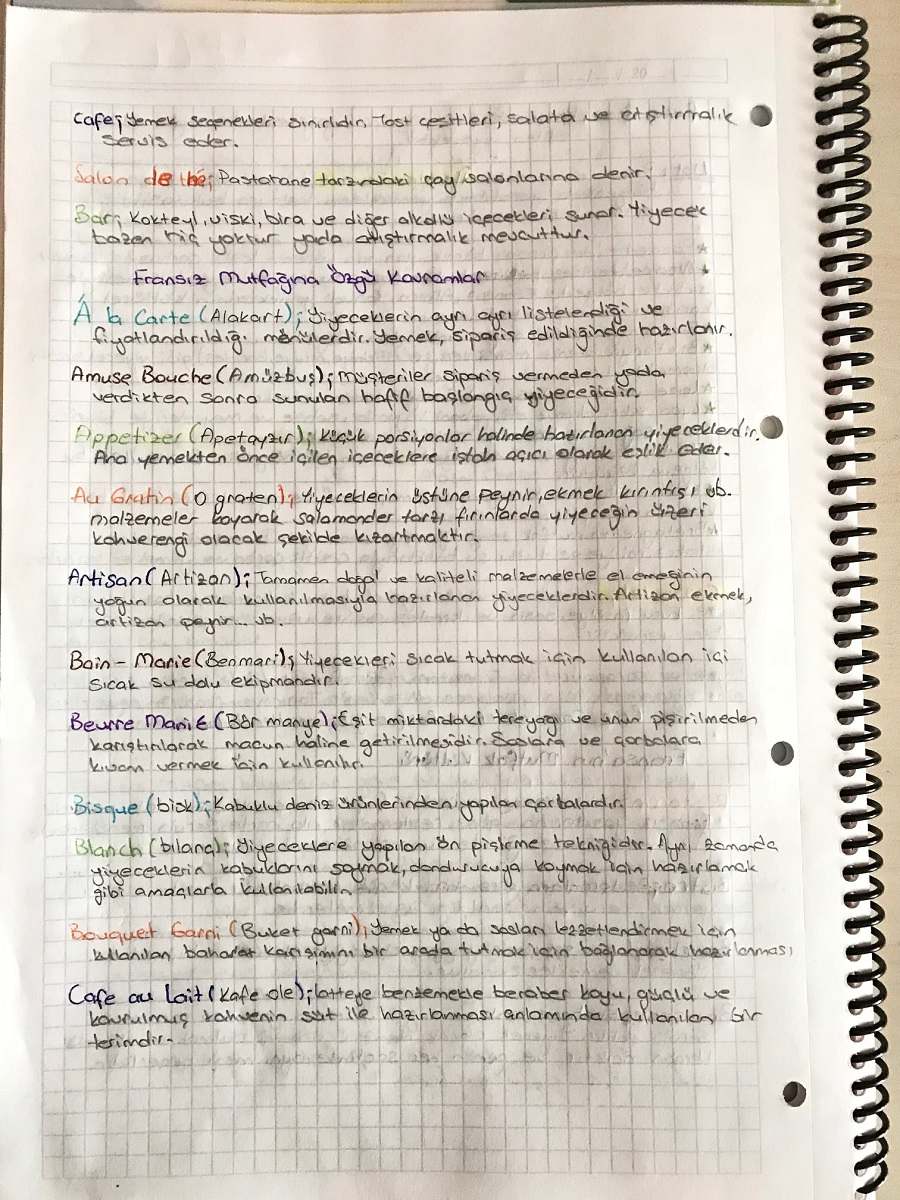 Cafe; Yemek seçenekleri sınırlıdır. Tost çeşitleri, salata ve atıştırmalık
servis eder.
Salon de thé; Pastahane tarzındaki çay salonlarına denir.
Bar; Kokteyl, viski, bira ve diğer alkollü içecekleri sunar. Yiyecek
bazen hiç yoktur yada atıştırmalık mevcuttur.
Fransız Mutfağına Özgü Kavramlar
Á la Carte (Alakart); Yiyeceklerin ayrı ayrı listelendiği ve
fiyatlandırıldığı menülerdir. Yemek, sipariş edildiğinde hazırlanır.
Amuse Bouche (Amüzbuş); müşteriler sipariş vermeden yada
verdikten sonra sunulan hafif başlangıç yiyeceğidir.
Appetizer (Apetayzır); küçük porsiyonlar halinde hazırlanan yiyeceklerdir.
Ana yemekten önce içilen içeceklere iştah açıcı olarak eşlik eder.
Au Gratin (O graten); Yiyeceklerin üstüne peynir, ekmek kırıntısı vb.
malzemeler koyarak salamander tarzı fırınlarda yiyeceğin üzeri
kahverengi olacak şekilde kızartmaktır.
Artisan (Artizan); Tamamen doğal ve kaliteli malzemelerle el emeğinin
yoğun olarak kullanılmasıyla hazırlanan yiyeceklerdir. Artizan ekmek,
artizan peynir... vb.
Bain - Marie (Benmari); Yiyecekleri sıcak tutmak için kullanılan içi
sıcak su dolu ekipmandır.
Beurre Manié (Bör manye); Eşit miktardaki tereyağı ve unun pişirilmeden
karıştırılarak macun haline getirilmesidir. Soslara ve çorbalara
kıvam vermek için kullanılır.
Bisque (bisk); Kabuklu deniz ürünlerinden yapılan çorbalardır.
Blanch (bilanç); Yiyeceklere yapılan ön pişirme tekniğidir. Aynı zamanda
yiyeceklerin kabuklarını soymak, dondurucuya koymak için hazırlamak
gibi amaçlarla kullanılabilir.
Bouquet Garni (Buket garni); Yemek ya da sosları lezzetlendirmek için
kullanılan baharat karışımını bir arada tutmak için bağlanarak hazırlanması
Cafe au Lait (Kafe ole); latteye benzemekle beraber koyu, güçlü ve
kavrulmuş kahvenin süt ile hazırlanması anlamında kullanılan bir
terimdir.